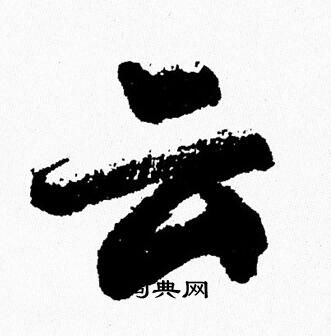 云
词典网